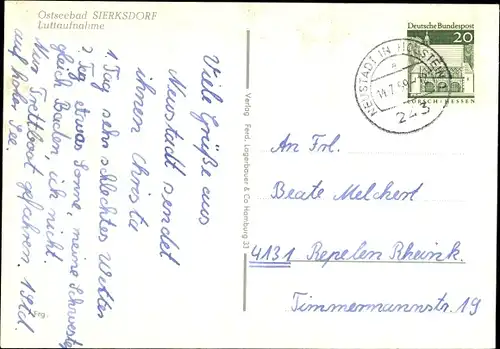 Ostseebad SIERKSDORF
Luftaufnahme
Viele Grüße aus
Neustadt sendet
ihnen Christa
1 Tag sehr schlechtes Wetter
2 Tag etwas Sonne, meine Schwester
gleich Baden, ich nicht.
Nun Trettboot gefahren. 1 Std.
auf hoher See.
Verlag Ferd. Lagerbauer & Co Hamburg 33
Deutsche Bundespost
20
LORSCH/HESSEN
NEUSTADT IN HOLSTEIN
a
243
An Frl.
Beate Melchert
4131 Repelen Rheink.
Timmermannstr. 19